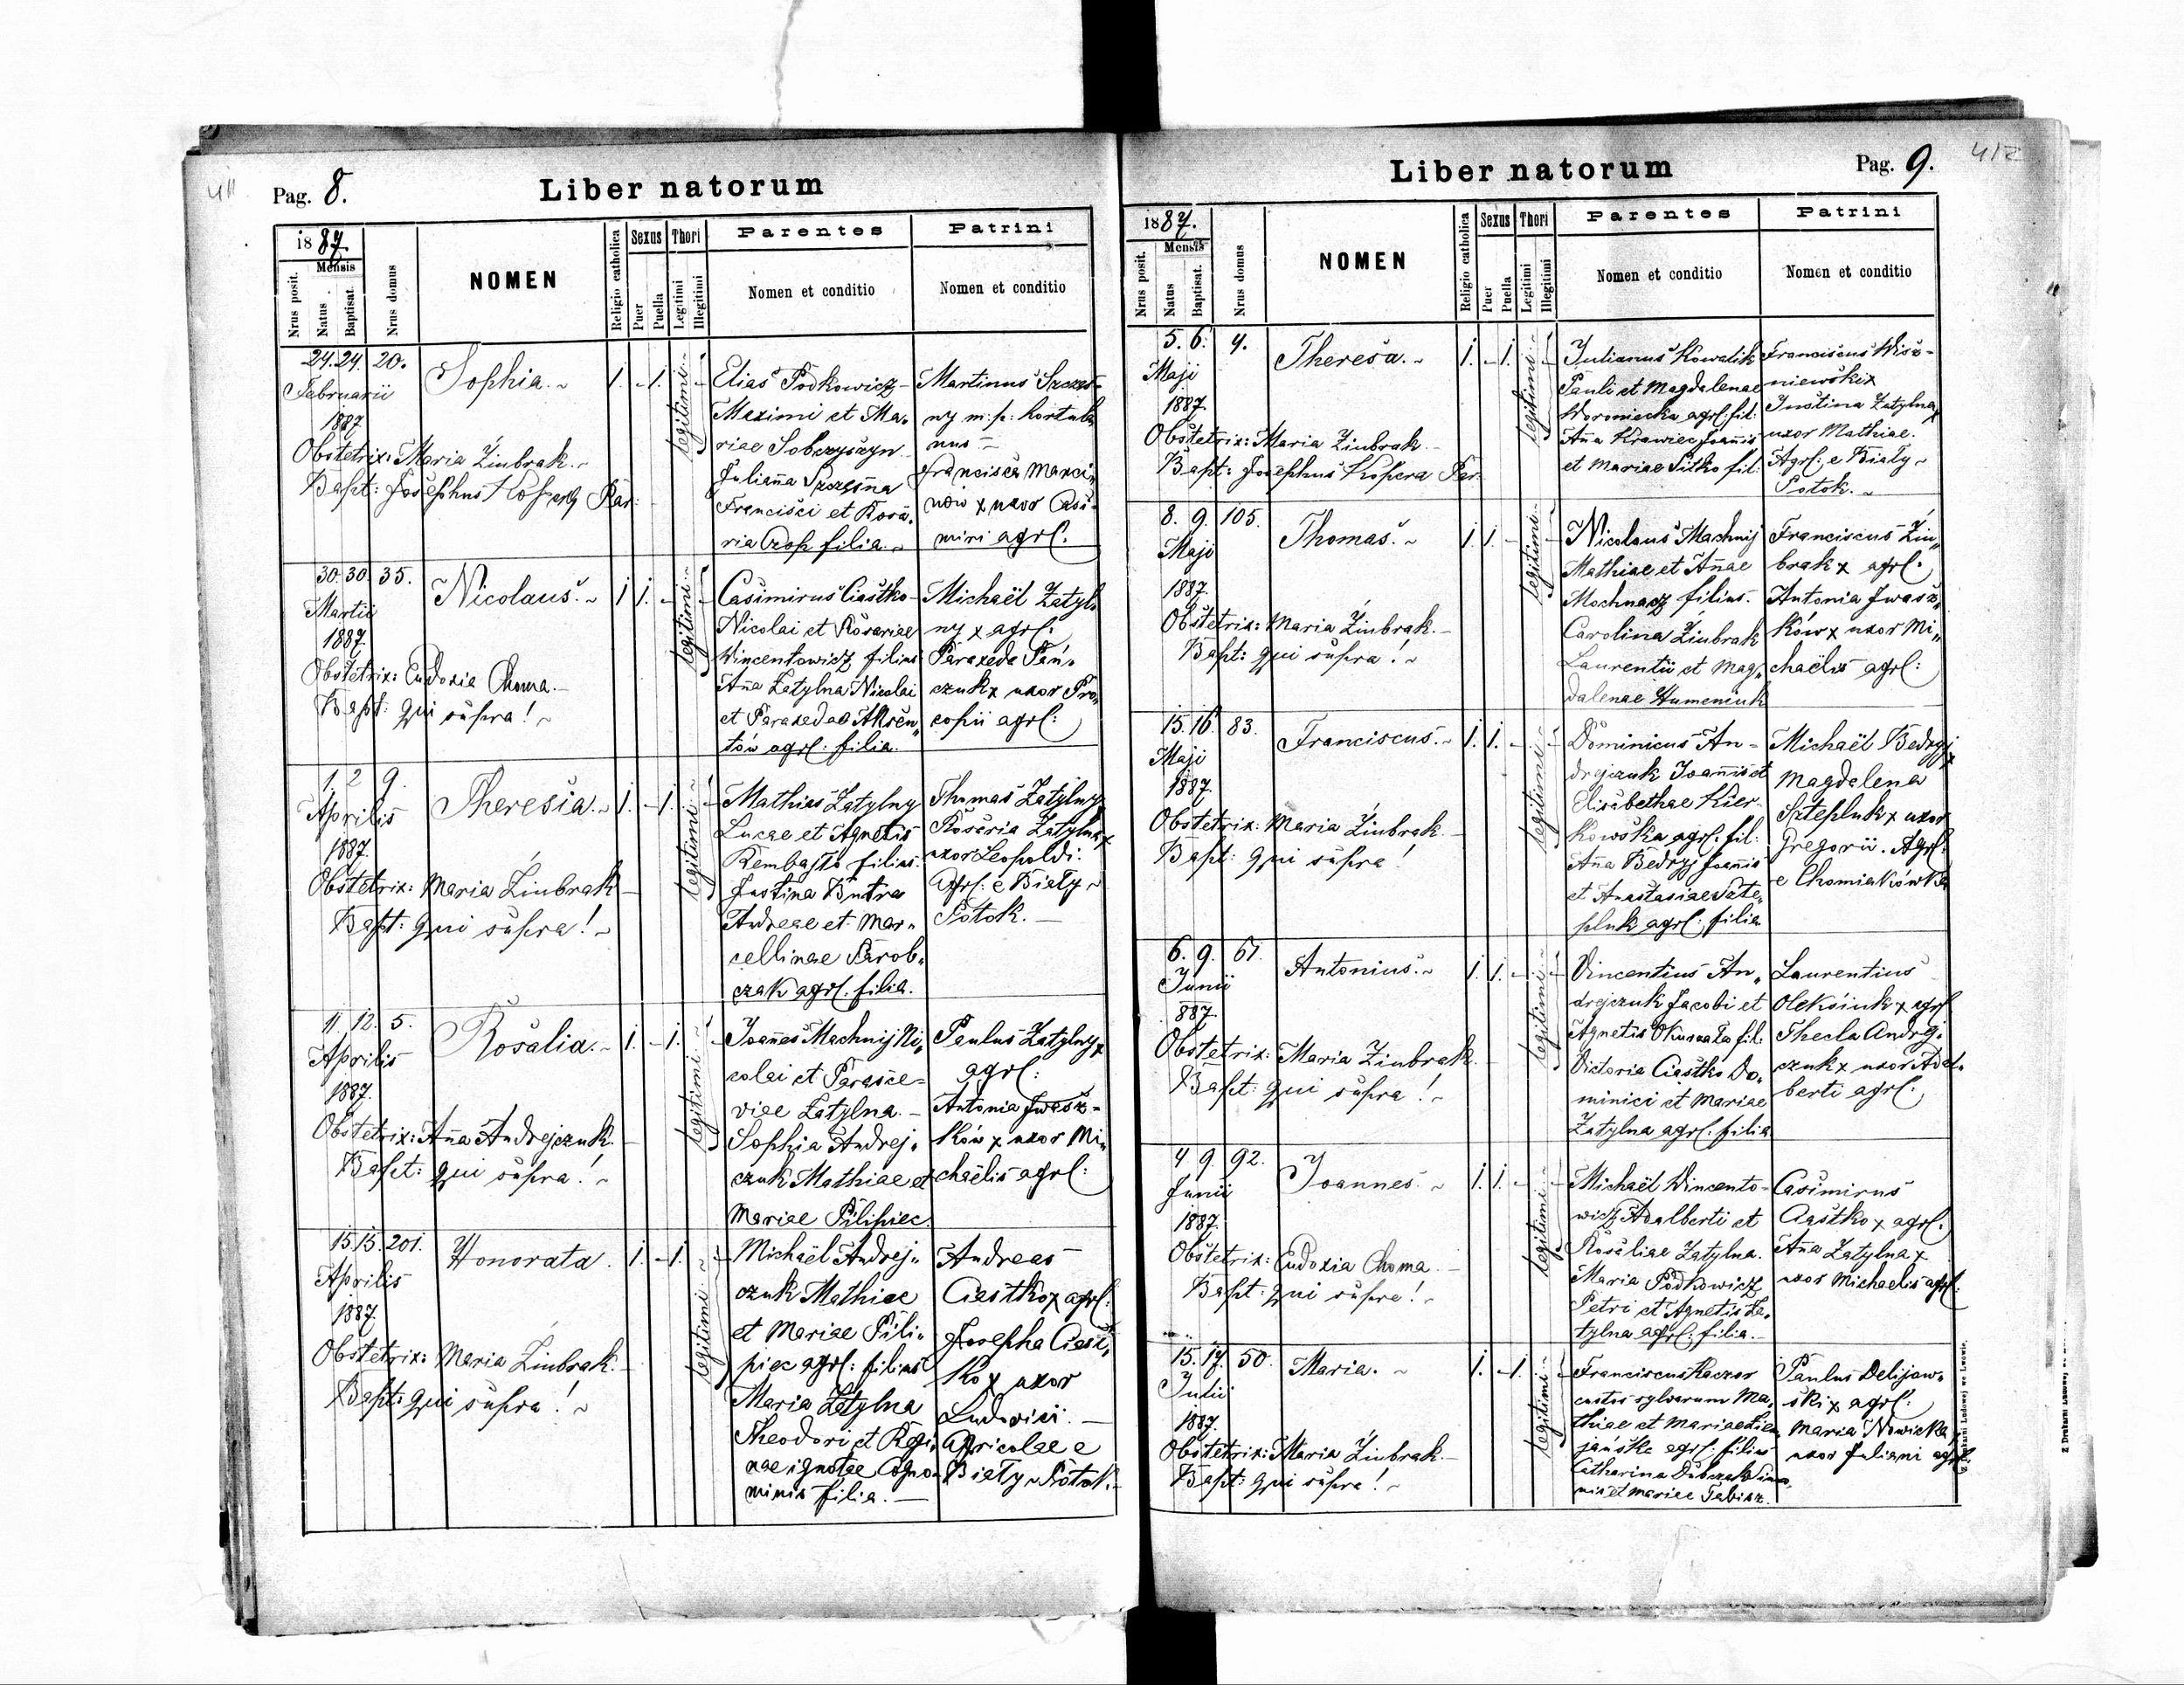 411
Pag. 8.
Liber natorum
1887.
Mensis
Nrus posit.
Natus
Baptisat.
Nrus domus
NOMEN
Religio catholica
Sexus
Puer
Puella
Thori
Legitimi
Illegitimi
Parentes
Nomen et conditio
Patrini
Nomen et conditio
24. 24. 20.
Februarii
1887
Sophia.
1. - 1.
legitimi
Obstetrix: Maria Ziubrak.
Bapt: Josephus Kopera Par:
Elias Podkowicz
Maximi et Ma-
riae Sobczyszyn
Julianna Szczęsna
Francisci et Rosa-
ria Czop filia.
Martinus Szczęs-
ny m. p.
nus
Francisca Marci-
nów x uxor Casi-
miri agrl.
30. 30. 35.
Martii
1887.
Nicolaus.
1 1. -
legitimi
Obstetrix: Eudoxia Choma.
Bapt: qui supra!
Casimirus Ciastko
Nicolai et Rosariae
Wincentowicz filius
Anna Zatylna Nicolai
et Paraxedae Aksen-
tów agrl: filia.
Michaël Zatyl-
ny x agrl:
Paraxeda Pań-
czuk x uxor Pro-
copii agrl:
1. 2 9.
Aprilis
1887.
Theresia.
1. - 1.
legitimi
Obstetrix: Maria Ziubrak
Bapt: qui supra!
Mathias Zatylny
Lucae et Agnetis
Rembajło filius.
Justina Butra
Andreae et Mar-
cellinae Parob-
czak agrl. filia.
Thomas Zatylny x
Rosaria Zatylna x
uxor Leopoldi.
Agrl: e Biały
Potok.
11. 12. 5.
Aprilis
1887.
Rosalia.
1. - 1.
legitimi
Obstetrix: Anna Andrejczuk.
Bapt: qui supra!
Joannes Machnij Ni-
colai et Parasce-
viae Zatylna.
Sophia Andrej-
czuk Mathiae et
Mariae Pilipiec.
Paulus Zatylny x
agrl:
Antonia Iwasz-
ków x uxor Mi-
chaëlis agrl:
15. 15. 201.
Aprilis
1887.
Honorata.
1. - 1.
legitimi
Obstetrix: Maria Ziubrak.
Bapt: qui supra!
Michaël Andrej-
czuk Mathiae
et Mariae Pili-
piec agrl: filius
Maria Zatylna
Theodori et Regi-
nae ignotae cogno-
minis filia.
Andreas
Ciastko x agrl:
Josepha Ciast-
ko x uxor
Ludovici.
Agricolae e
Biały Potok.
412
Pag. 9.
Liber natorum
1887.
Mensis
Nrus posit.
Natus
Baptisat.
Nrus domus
NOMEN
Religio catholica
Sexus
Puer
Puella
Thori
Legitimi
Illegitimi
Parentes
Nomen et conditio
Patrini
Nomen et conditio
5. 6. 4.
Maji
1887
Theresa.
1. - 1.
legitimi
Obstetrix: Maria Ziubrak.
Bapt: Josephus Kopera Par:
Julianus Kowalik
Pauli et Magdalenae
Woroniecka agrl: fil:
Anna Krawiec Joannis
et Mariae Sitko fil:
Franciscus Wisz-
niewski x
Justina Zatylna x
uxor Mathiae.
Agrl: e Biały
Potok.
8. 9. 105.
Maji
1887.
Thomas.
1. 1. -
legitimi
Obstetrix: Maria Ziubrak.
Bapt: qui supra!
Nicolaus Machnij
Mathiae et Annae
Mochnacz filius.
Carolina Ziubrak
Laurentii et Mag-
dalenae Humeniuk
Franciscus Ziu-
brak x agrl.
Antonia Iwasz-
ków x uxor Mi-
chaëlis agrl:
15. 16. 83.
Maji
1887.
Franciscus.
1. 1. -
legitimi
Obstetrix: Maria Ziubrak.
Bapt: qui supra!
Dominicus An-
drejczuk Joannis et
Elisabethae Kier-
kowska agrl. fil:
Anna Bedryj Joannis
et Anastasiae Szte-
pluk agrl: filia
Michaël Bedryj x
Magdalena
Sztepluk x uxor
Gregorii. Agrl:
e Chomiakówka
6. 9. 61.
Junii
887.
Antonius.
1. 1. -
legitimi
Obstetrix: Maria Ziubrak.
Bapt: qui supra!
Vincentius An-
drejczuk Jacobi et
Agnetis fil:
Victoria Ciastko Do-
minici et Mariae
Zatylna agrl. filia
Laurentius
Oleksiuk x agrl
Thecla Andrej-
czuk x uxor Adal-
berti agrl.
4 9. 92.
Junii
1887.
Joannes.
1. 1. -
legitimi
Obstetrix: Eudoxia Choma.
Bapt: qui supra!
Michaël Wincento-
wicz Adalberti et
Rosaliae Zatylna.
Maria Podkowicz
Petri et Agnetis Za-
tylna agrl: filia.
Casimirus
Ciastko x agrl.
Anna Zatylna x
uxor Michaelis agrl:
15. 17. 50.
Julii
1887.
Maria.
1. - 1.
legitimi
Obstetrix: Maria Ziubrak.
Bapt: qui supra!
Franciscus Kaczor
custos sylvarum Ma-
thiae et Mariae
agrl: filius
Catharina
et Mariae
Paulus Delijow-
ski x agrl:
Maria Nowicka x
uxor Juliani agrl.
Z Drukarni Ludowej we Lwowie.